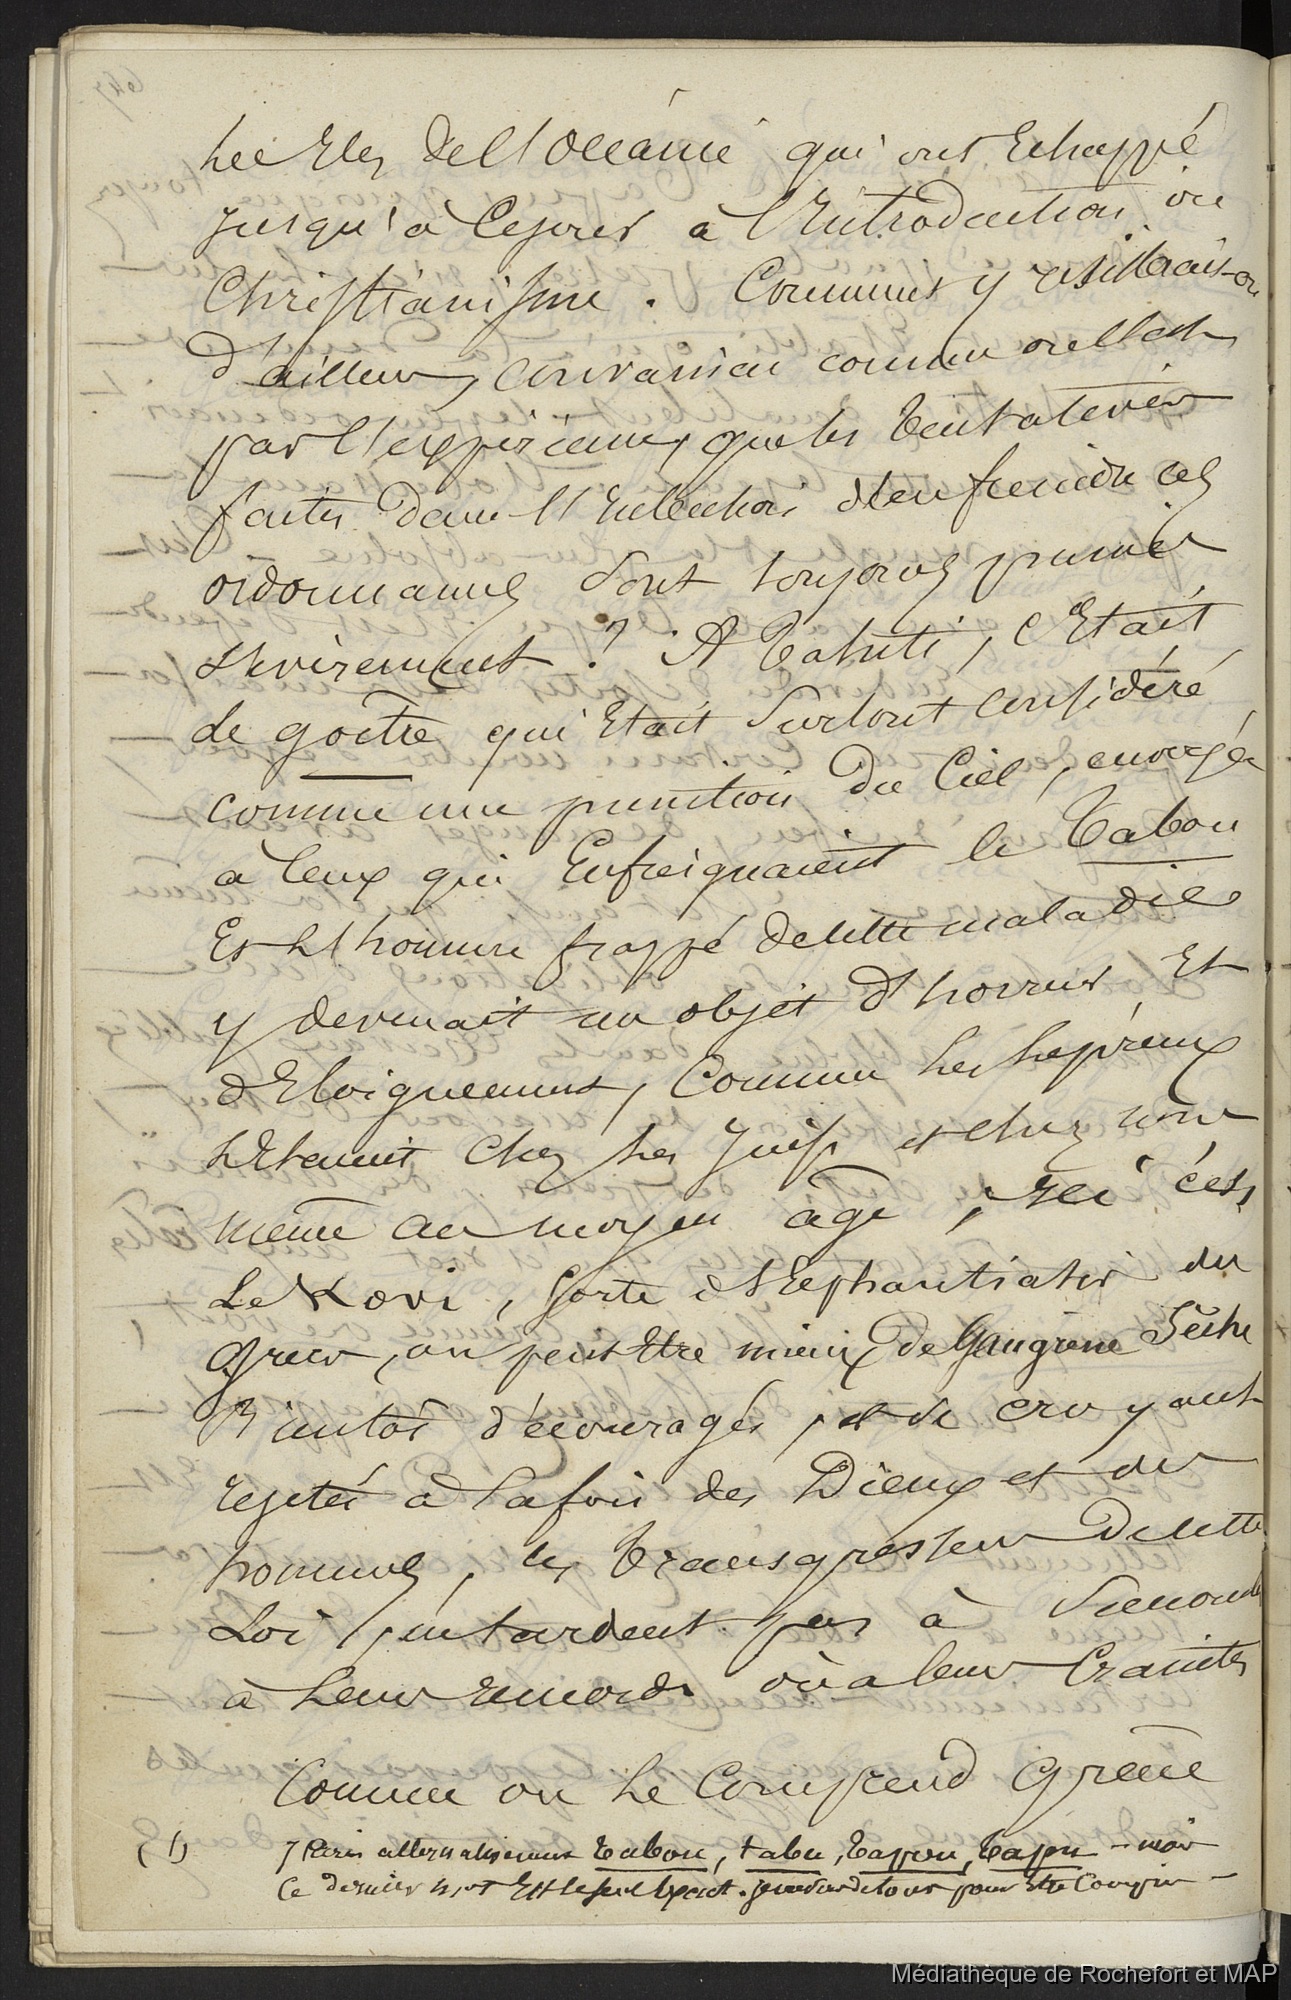 les Iles de l'Océanie qui ont Echappé
jusqu'à ce jour à l'Introduction du
Christianisme. Comment y résisterait-on
d'ailleurs, convaincu comme on l'est
par l'expérience, que les tentatives
faites dans l'intention d'enfreindre ces
ordonnances sont toujours punies
sévèrement? A Tahiti, c'Etait
le goître qui Etait surtout considéré
comme une punition du Ciel, envoyée
à ceux qui Enfreignaient le Tabou
Et l'homme frappé de cette maladie
y devenait un objet d'horreur Et
d'Eloignement, comme les lépreux
l'Etaient chez les Juifs et chez nous
même au moyen âge; Ici c'est
le Kovi, sorte d'Elephantiasis des
Grecs, ou peut être mieux de Gangrène Sèche
Bientôt découragés, et se croyant
rejetés à la fois des Dieux et des
hommes, les transgresseurs de cette
Loi, ne tardent pas à succomber
à leurs remords ou à leurs Craintes
Comme on le Comprend
(1) J'écris alternativement Tabou, tabu, Tapou, Tapu — mais
Ce dernier mot Est le seul Exact.
Médiathèque de Rochefort et MAP